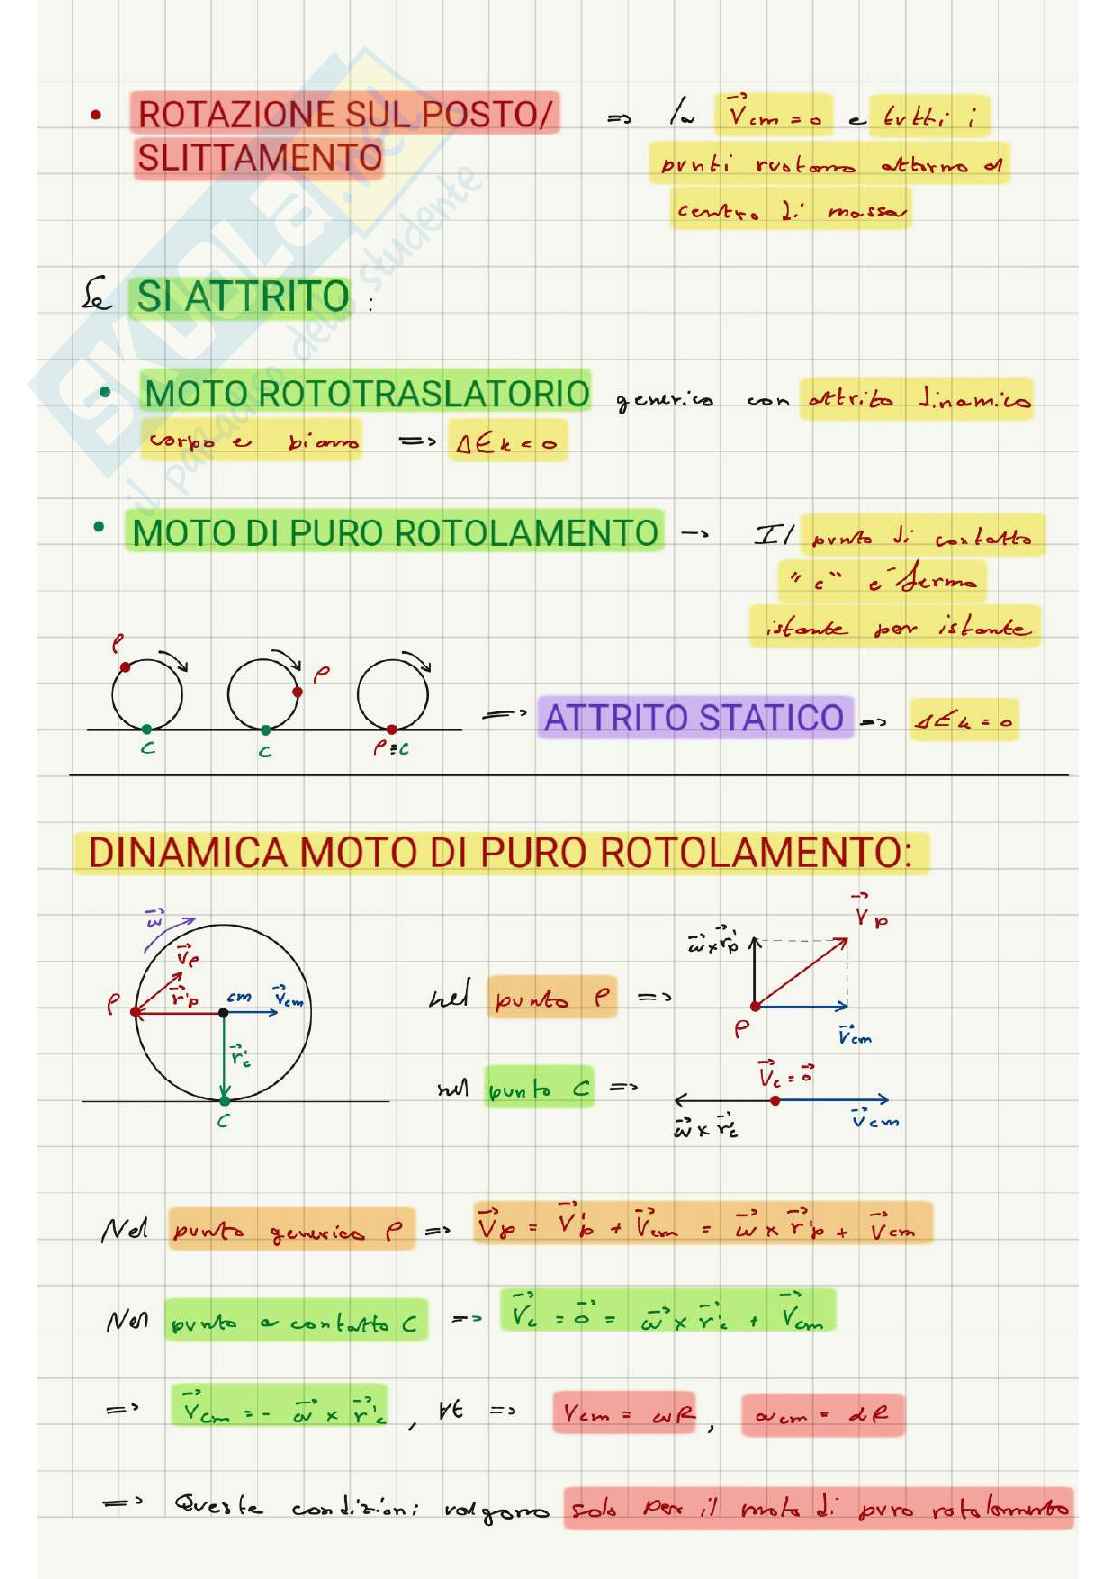 • ROTAZIONE SUL POSTO/ => la V⃗cm = 0 e tutti i
SLITTAMENTO punti ruotano attorno al
centro di massa
Se SI ATTRITO :
• MOTO ROTOTRASLATORIO generico con attrito dinamico
corpo e piano => ΔEk < 0
• MOTO DI PURO ROTOLAMENTO -> Il punto di contatto
"c" è fermo
istante per istante
P P
=> ATTRITO STATICO => ΔEk = 0
C C P≡C
DINAMICA MOTO DI PURO ROTOLAMENTO:
ω⃗ V⃗p r⃗'p P cm V⃗cm r⃗'c C
nel punto P => ω⃗ x r⃗'p V⃗p P V⃗cm
sul punto C => V⃗c = 0⃗ ω⃗ x r⃗'c V⃗cm
Nel punto generico P => V⃗p = V⃗'p + V⃗cm = ω⃗ x r⃗'p + V⃗cm
Nel punto a contatto C => V⃗c = 0⃗ = ω⃗ x r⃗'c + V⃗cm
=> V⃗cm = - ω⃗ x r⃗'c , ∀t => Vcm = ωR , acm = αR
=> Queste condizioni valgono solo per il moto di puro rotolamento
SKUOLA.net
il paradiso dello studente